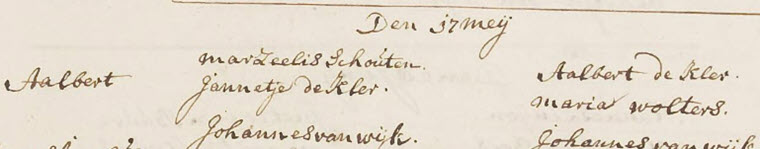 Den 17 meÿ
marzeelis schouten.
Aalbert
jannetje de Kler.
Aalbert de Kler.
maria wolters.
Johannes van wijk.
Johannes van wijk